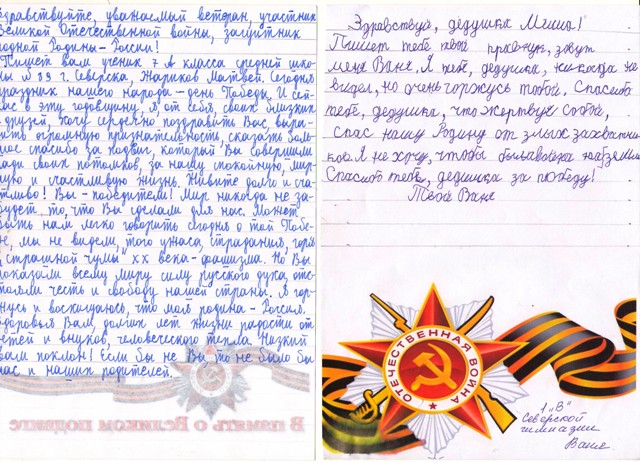 Здравствуйте, уважаемый ветеран, участник
Великой Отечественной войны, защитник
родной Родины - России!
Пишет вам ученик 7 А класса средней шко-
лы №89 г. Северска, Жариков Матвей. Сегодня
праздник нашего народа - день Победы. И сей-
час в эту годовщину, я от себя, своих близких
и друзей, хочу сердечно поздравить Вас, выра-
зить огромную признательность, сказать боль-
шое спасибо за подвиг, который Вы совершили
ради своих потомков, за нашу спокойную, мир-
ную и счастливую жизнь. Живите долго и сча-
стливо! Вы - победители! Мир никогда не за-
будет то, что Вы сделали для нас. Может
быть нам легко говорить сегодня о той Побе-
де, мы не видели того ужаса, страдания, горя
и страшной чумы XX века - фашизма. Но Вы
показали всему миру силу русского духа, отс-
тояли честь и свободу нашей страны. Я гор-
жусь и восхищаюсь, что моя родина - Россия.
Здоровья Вам, долгих лет жизни радости от
детей и внуков, человеческого тепла. Низкий
вам поклон! Если бы не Вы, то не было бы
нас и наших родителей.
В память о Великом подвиге
Здравствуй, дедушка Миша!
Пишет тебе твой правнук, зовут
меня Ваня. Я тебя, дедушка, никогда не
видел, но очень горжусь тобой. Спасибо
тебе, дедушка, что жертвуя собой,
спас нашу Родину от злых захватчи-
ков. Я не хочу, чтобы была война на земле.
Спасибо тебе, дедушка за победу!
Твой Ваня
ОТЕЧЕСТВЕННАЯ ВОЙНА
1 "В"
Северской
гимназии
Ваня